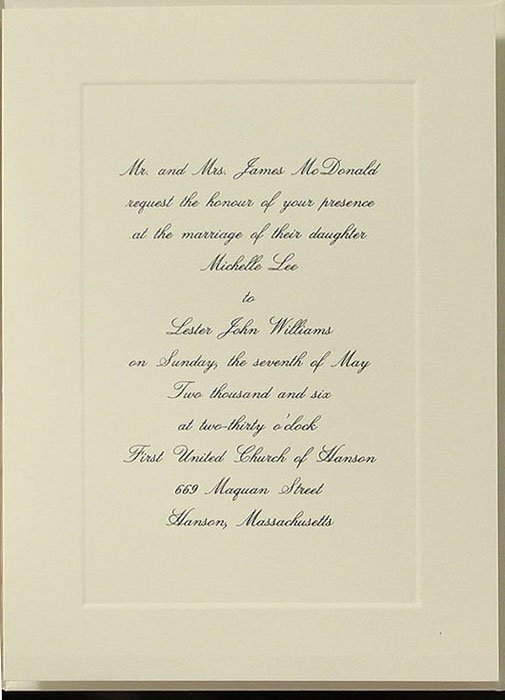 Mr. and Mrs. James McDonald
request the honour of your presence
at the marriage of their daughter
Michelle Lee
to
Lester John Williams
on Sunday, the seventh of May
Two thousand and six
at two-thirty o'clock
First United Church of Hanson
669 Maquan Street
Hanson, Massachusetts